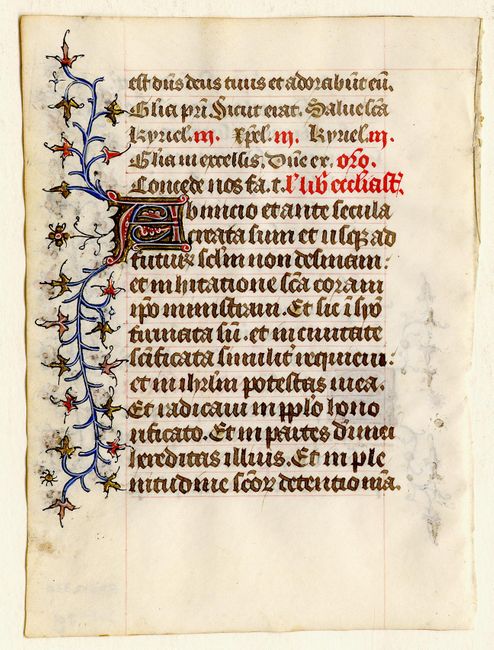 est dn̄s deus tuus et adorabūt eū.
Gl̄ia pr̄i. Sicut erat. Salue sc̄a
Kyriel. iij. xp̄el. iij. Kyriel. iij.
Gl̄ia in excelsis. Dn̄e ex. oro.
Concede nos fa. t. l' lib' ecclīast'.
Ab inicio et ante secula
creata sum et usq; ad
futuꝝ sc̄lm non desinam:
et in hitatione sc̄a coram
ip̄o ministraui. Et sic ī syō
firmata sū. et in ciuitate
sc̄ificata similit' requieui:
et in ihrl̄m potestas mea.
Et radicaui in pp̄lo hono
rificato. Et in partes dei mei
hereditas illius. Et in ple
nitudine sc̄oꝝ detentio mā.